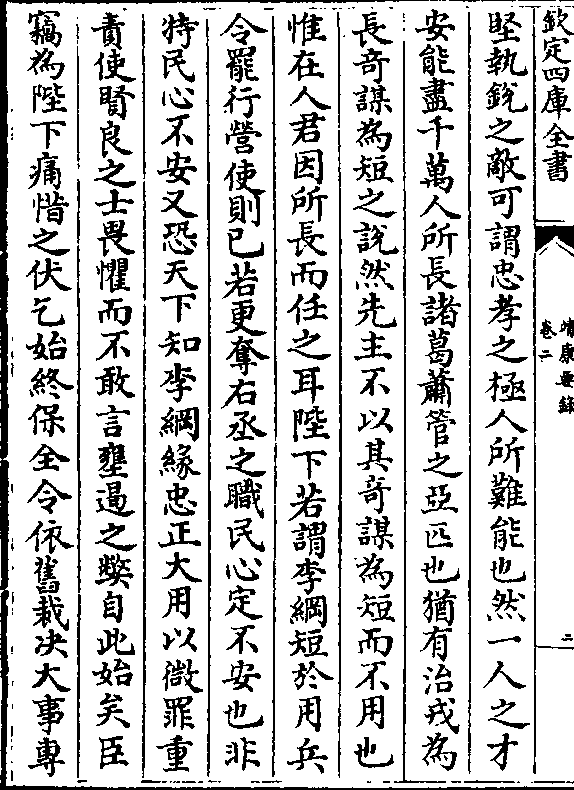 欽定四庫全書
靖康要錄
卷二
二
堅執銳之敵可謂忠孝之極人所難能也然一人之才
安能盡千萬人所長諸葛蕭管之亞匹也猶有治戎為
長奇謀為短之說然先主不以其奇謀為短而不用也
惟在人君因所長而任之耳陛下若謂李綱短於用兵
令罷行營使則已若更奪右丞之職民心定不安也非
特民心不安又恐天下知李綱緣忠正大用以微罪重
責使賢良之士畏懼而不敢言壅遏之弊自此始矣臣
竊為陛下痛惜之伏乞始終保全令依舊裁决大事專